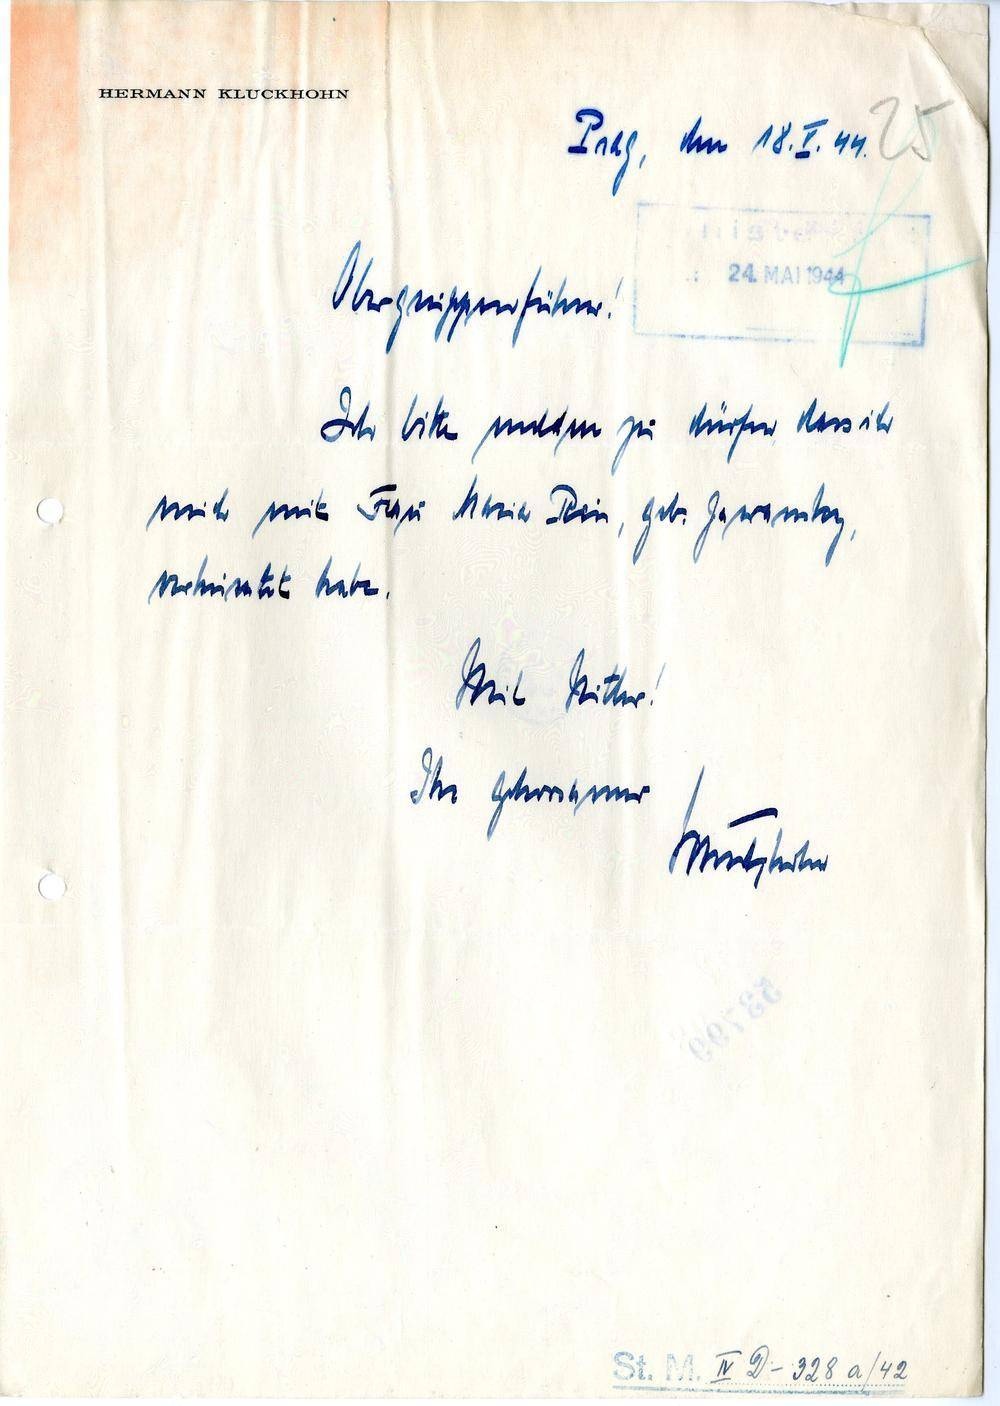 HERMANN KLUCKHOHN
Prag, den 18.V.44.
25
24. MAI 1944
Obergruppenführer!
Ich bitte melden zu dürfen, dass ich
mich mit Frau Maria geb.
verheiratet habe.
Heil Hitler!
Ihr gehorsamer
Kluckhohn
53799
St. M. IV D - 328 a/42